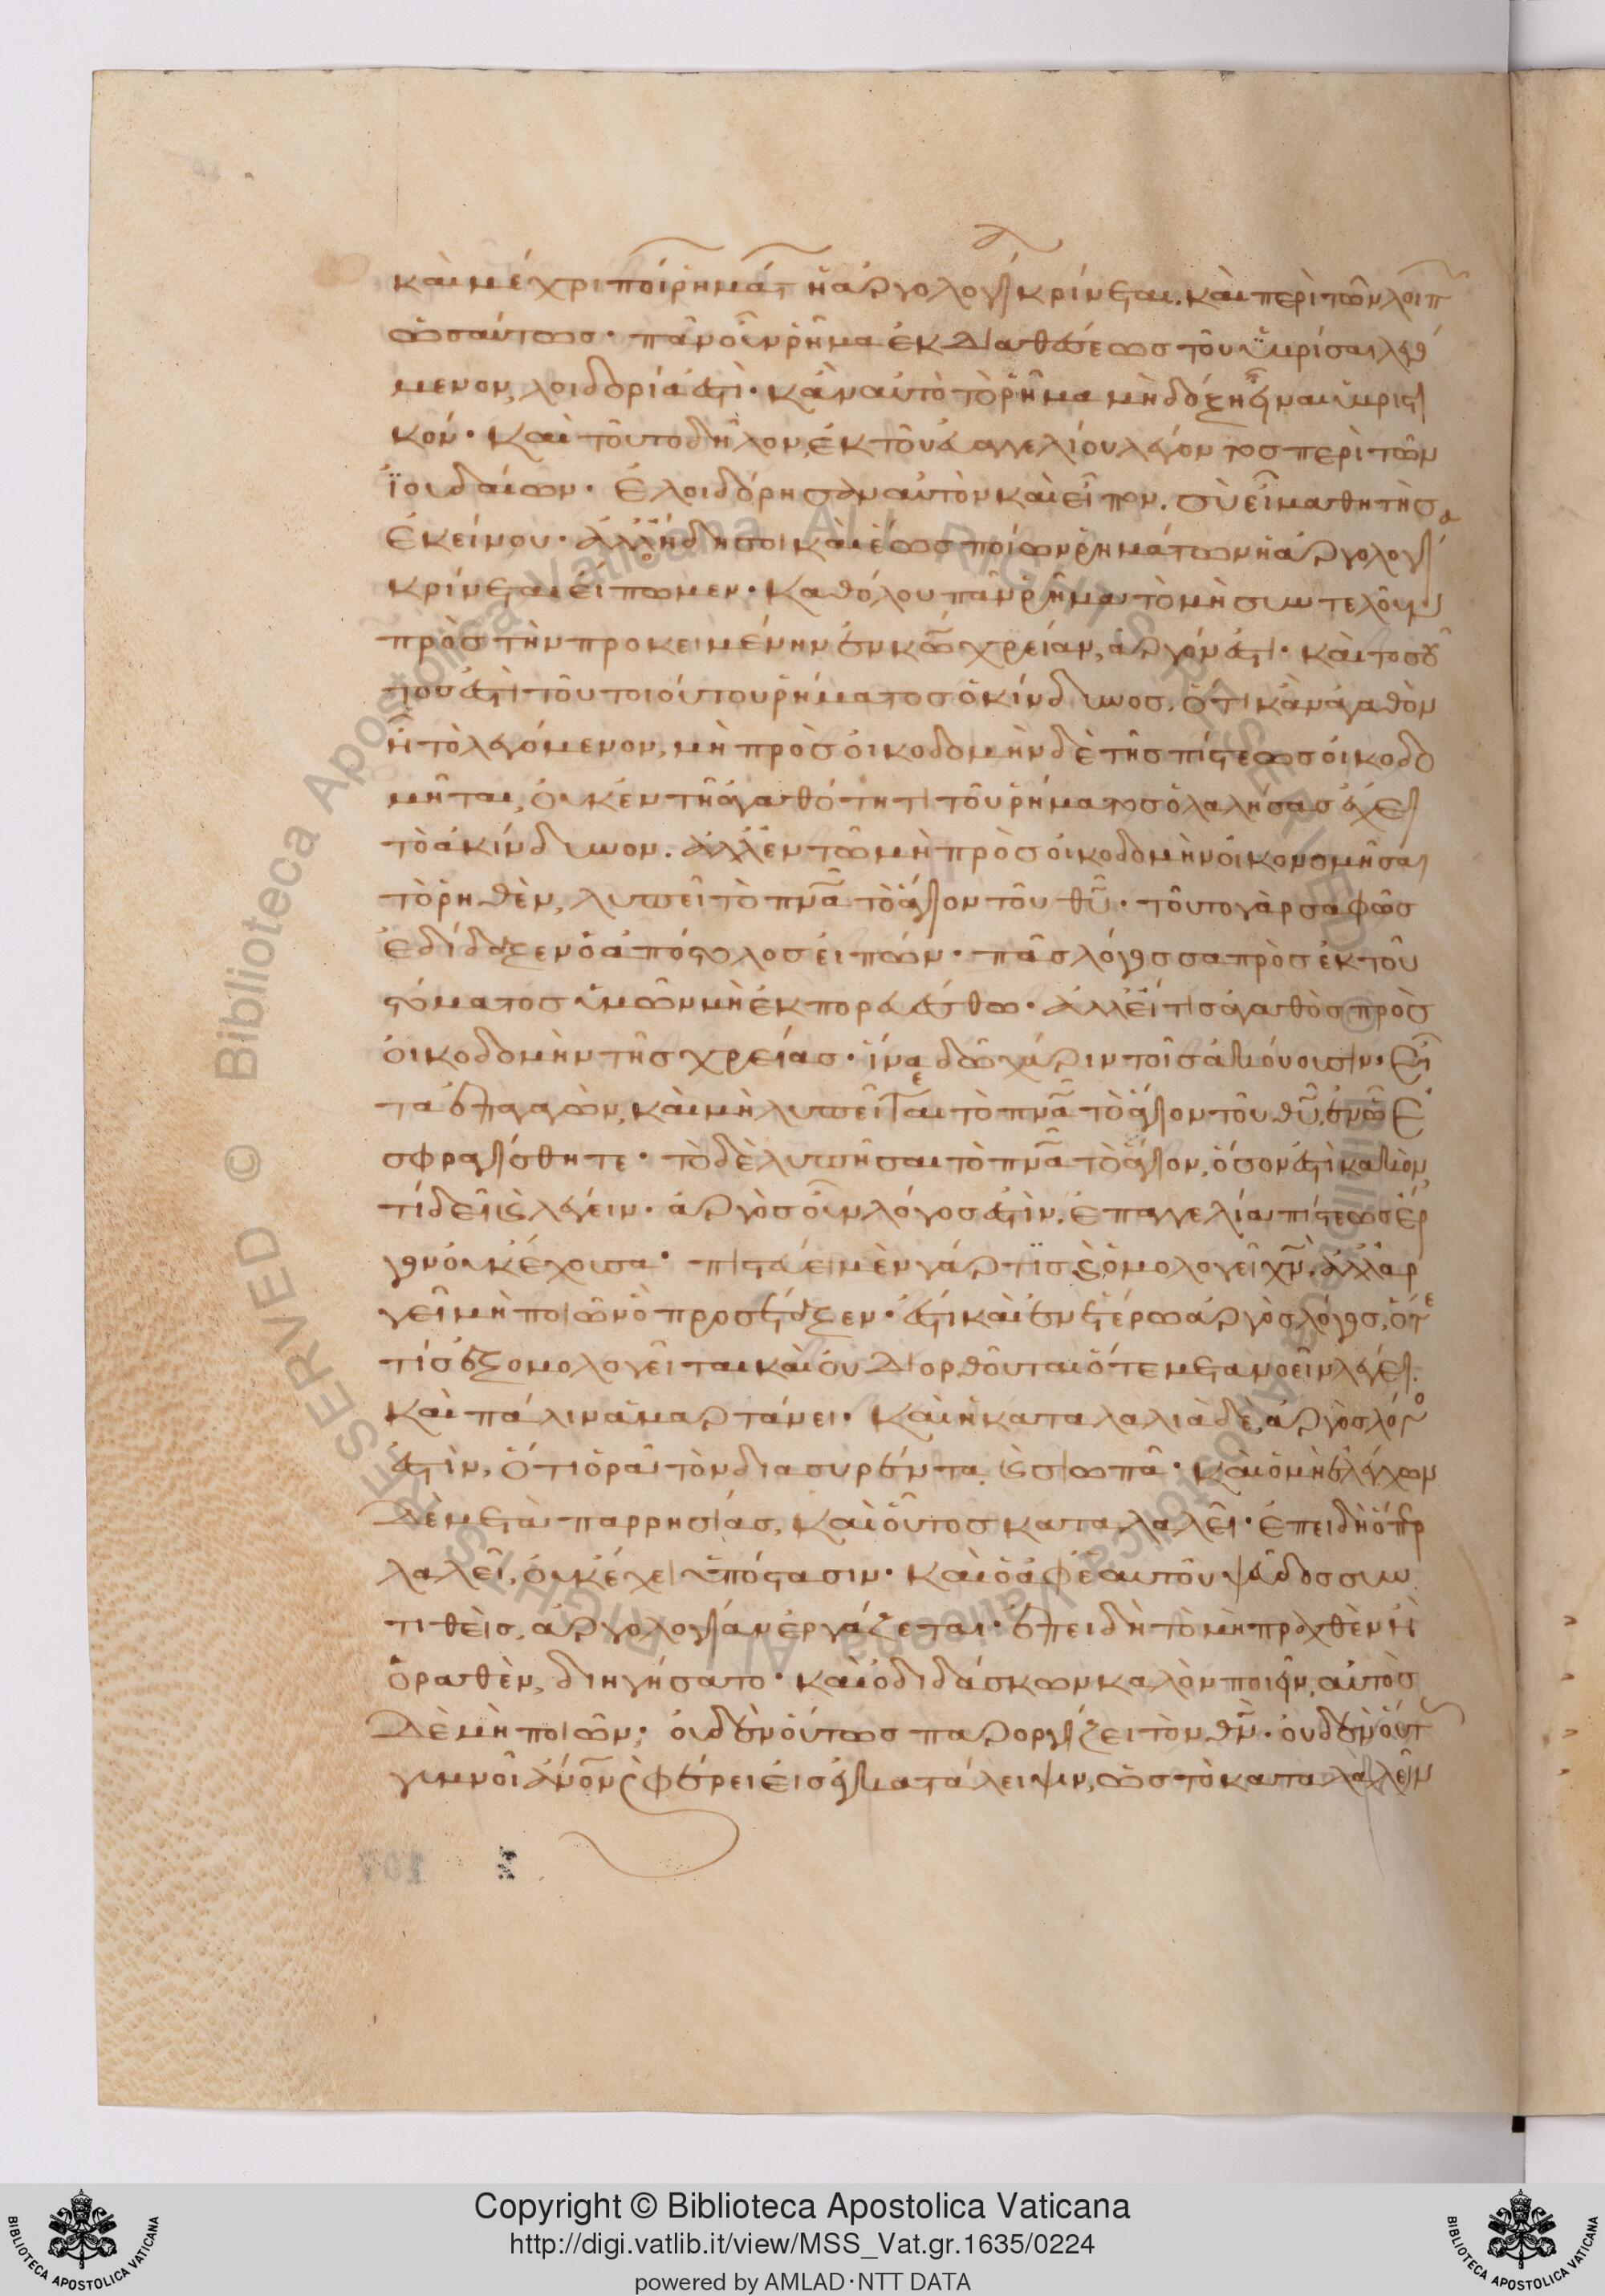 καὶ μέχρι ποί ῥημάτ ἡ ἀργολογία κρίνεται. καὶ περὶ τῶν λοιπ
ὡσαύτως· πᾶν οὖν ῥῆμα ἐκ διαθέσεως τοῦ ὑβρίσαι λεγό
μενον, λοιδορία ἐστὶ· κἂν αὐτὸ τὸ ῥῆμα μὴ δόξῃ εἶναι ὑβριστι
κόν· καὶ τοῦτο δῆλον, ἐκ τοῦ εὐαγγελίου λέγοντος περὶ τῶν
ἰουδαίων· ἐλοιδόρησαν αὐτὸν καὶ εἶπον. σὺ εἶ μαθητὴς
ἐκείνου· ἀλλ' ἤδη σοι καὶ ἕως ποίων ῥημάτων ἡ ἀργολογία
κρίνεται εἴπωμεν· καθόλου πᾶν ῥῆμα τὸ μὴ συντελοῦν
πρὸς τὴν προκειμένην ἐν κω χρείαν, ἀργόν ἐστι· καὶ τοσοῦ
τος ἐστὶ τοῦ τοιούτου ῥήματος ὁ κίνδυνος, ὅτι κἂν ἀγαθὸν
ἦ τὸ λεγόμενον, μὴ πρὸς οἰκοδομὴν δὲ τῆς πίστεως οἰκοδο
μῆται, οὐκ ἐν τῆ ἀγαθότητι τοῦ ῥήματος ὁ λαλήσας ἔχει
τὸ ἀκίνδυνον. ἀλλ' ἐν τῶ μὴ πρὸς οἰκοδομὴν οἰκονομῆσαι
τὸ ῥηθὲν, λυπεῖ τὸ πνα τὸ ἅγιον τοῦ θυ· τοῦτο γὰρ σαφῶς
ἐδίδαξεν ὁ ἀπόστολος εἰπών· πᾶς λόγος σαπρὸς ἐκ τοῦ
στόματος ὑμῶν μὴ ἐκπορευέσθω· ἀλλ' εἴ τις ἀγαθὸς πρὸς
οἰκοδομὴν τῆς χρείας· ἵνα δῶ χάριν τοῖς ἀκούουσιν· εἶ
τα ἐπαγαγὼν, καὶ μὴ λυπεῖτε τὸ πνα τὸ ἅγιον τοῦ θυ, ἐν ὧ ἐ
σφραγίσθητε· τὸ δὲ λυπῆσαι τὸ πνα τὸ ἅγιον, ὅσον ἐστὶ κακὸν,
τί δεῖ καὶ λέγειν· ἀργὸς οὖν λόγος ἐστὶν, ἐπαγγελία πίστεως ἔρ
γον οὐκ ἔχουσα· πιστεύει μὲν γάρ τις καὶ ὁμολογεῖ χν, ἀλλ' ἀρ
γεῖ μὴ ποιῶν ὃ προσέταξεν· ἐστὶ καὶ ἐν ἑτέρω ἀργὸς λόγος, ὅτε
τίς ἐξομολογεῖται καὶ οὐ διορθοῦται ὅτε μετανοεῖν λέγει.
καὶ πάλιν ἁμαρτάνει· καὶ ἡ καταλαλιὰ δε, ἀργὸς λόγο
ἐστὶν, ὅτι ὁρᾶ τὸν διασυρέντα καὶ σιωπᾶ· καὶ ὁ μὴ ἐλέγχων
δὲ μετὰ παρρησίας, καὶ οὗτος καταλαλεῖ· ἐπειδὴ ὅπερ
λαλεῖ, οὐκ ἔχει ὑπόστασιν· καὶ ὁ ἀφ' ἑαυτοῦ ψεῦδος συν
τιθεὶς, ἀργολογίαν ἐργάζεται· ἐπειδὴ τὸ μὴ πραχθὲν ἢ
ὁραθὲν, διηγήσατο· καὶ ὁ διδάσκων καλὸν ποιεῖν, αὐτὸς
δὲ μὴ ποιῶν· οὐδὲν οὕτως παροργίζει τὸν θν· οὐδὲν οὕτ
γυμνοῖ ἀνον καὶ φέρει εἰς ἐγκατάλειψιν, ὡς τὸ καταλαλεῖν